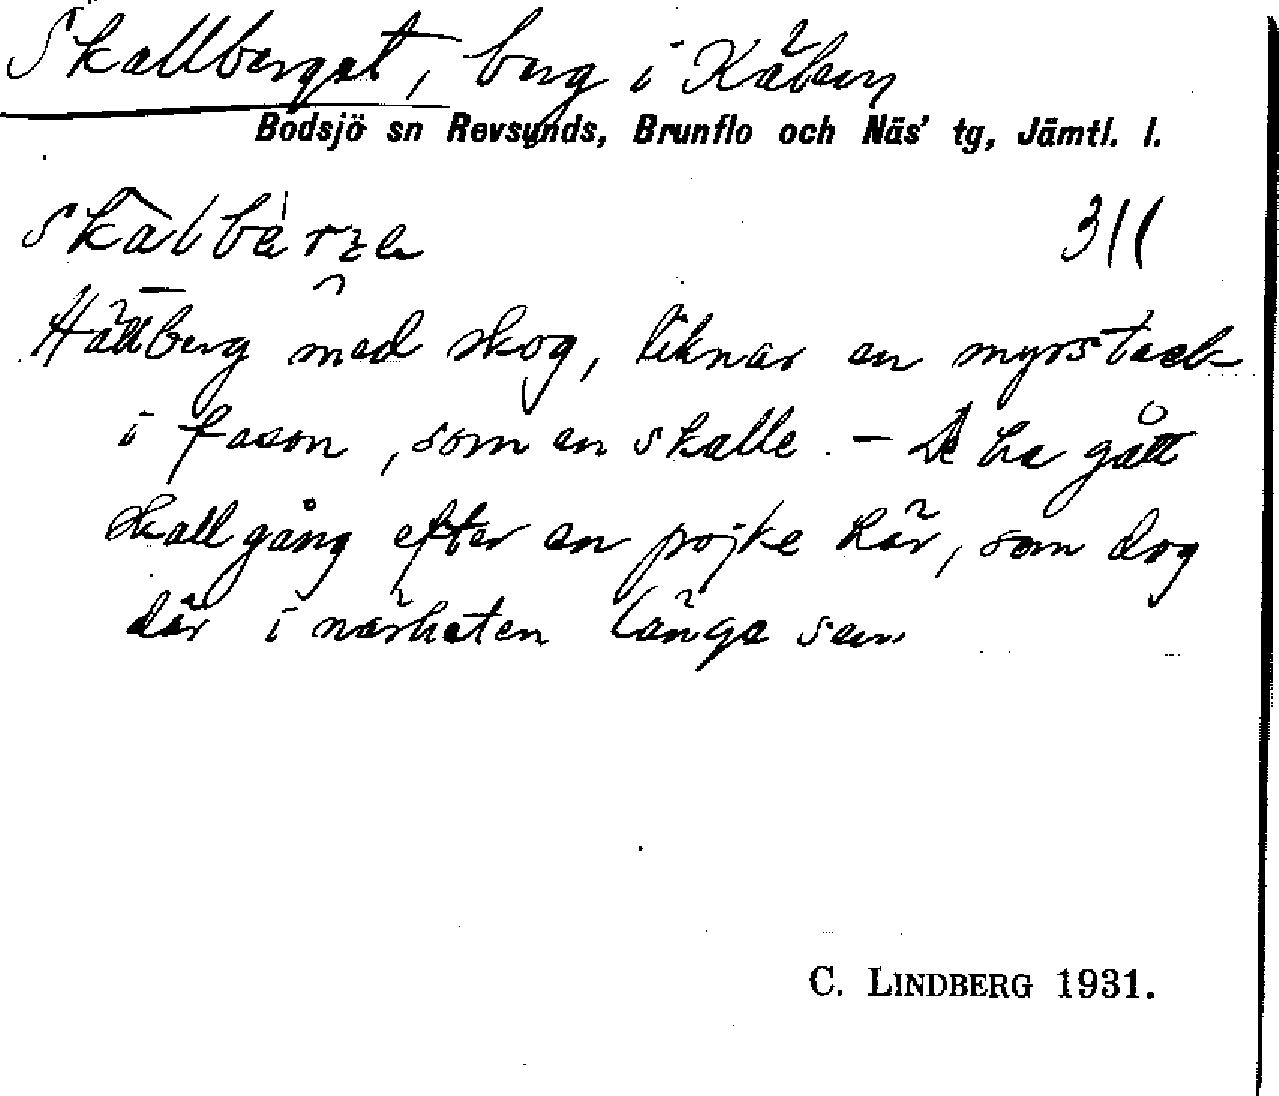 Skallberget, berg i Käben
Bodsjö sn Revsunds, Brunflo och Näs' tg, Jämtl. l.
311
Hällberg med skog, liknar en myrstack
i fason, som en skalle. – De ha gått
skallgång efter en pojke här, som dog
där i närheten länge sen
C. LINDBERG 1931.